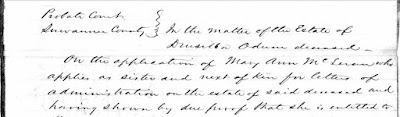 Probate Court
Suwannee County
In the matter of the Estate of
Druscilla Odum deceased
On the application of Mary Ann McLeran who
applies as sister and next of kin for letters of
administration on the estate of said deceased and
having shown by due proof that she is entitled to